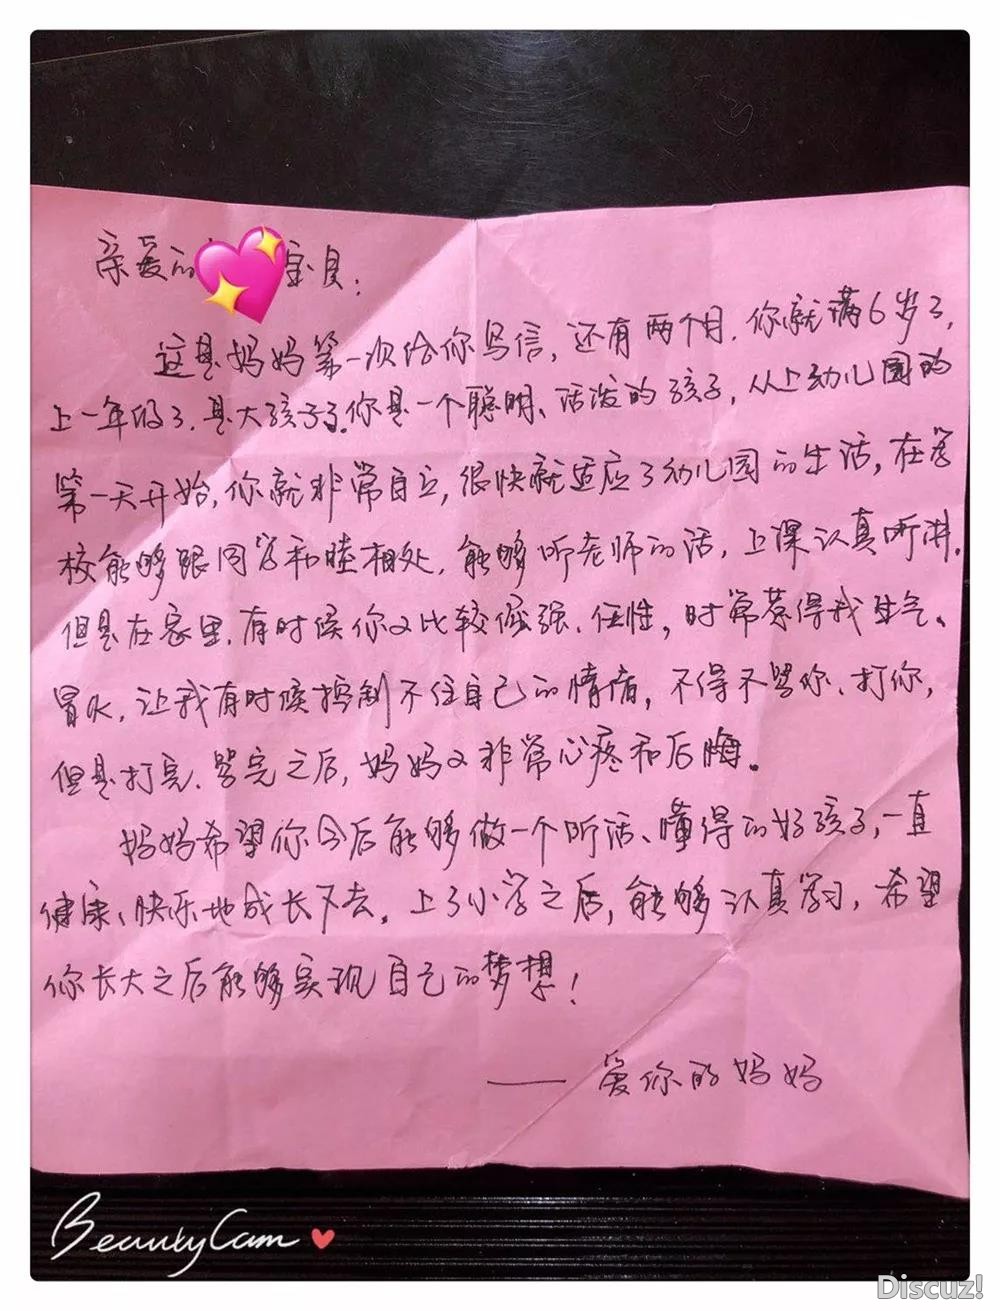 亲爱的宝贝:
这是妈妈第一次给你写信,还有两个月,你就满6岁了,
上一年级了,是大孩子了。你是一个聪明、活泼的孩子,从上幼儿园的
第一天开始,你就非常自立,很快就适应了幼儿园的生活,在学
校能够跟同学和睦相处,能够听老师的话,上课认真听讲。
但是在家里,有时候你又比较倔强、任性,时常惹得我生气、
冒火,让我有时候控制不住自己的情绪,不得不骂你、打你,
但是打完、骂完之后,妈妈又非常心疼和后悔。
妈妈希望你今后能够做一个听话、懂得的好孩子,一直
健康、快乐地成长下去。上了小学之后,能够认真学习,希望
你长大之后能够实现自己的梦想!
——爱你的妈妈
BeautyCam
Discuz!